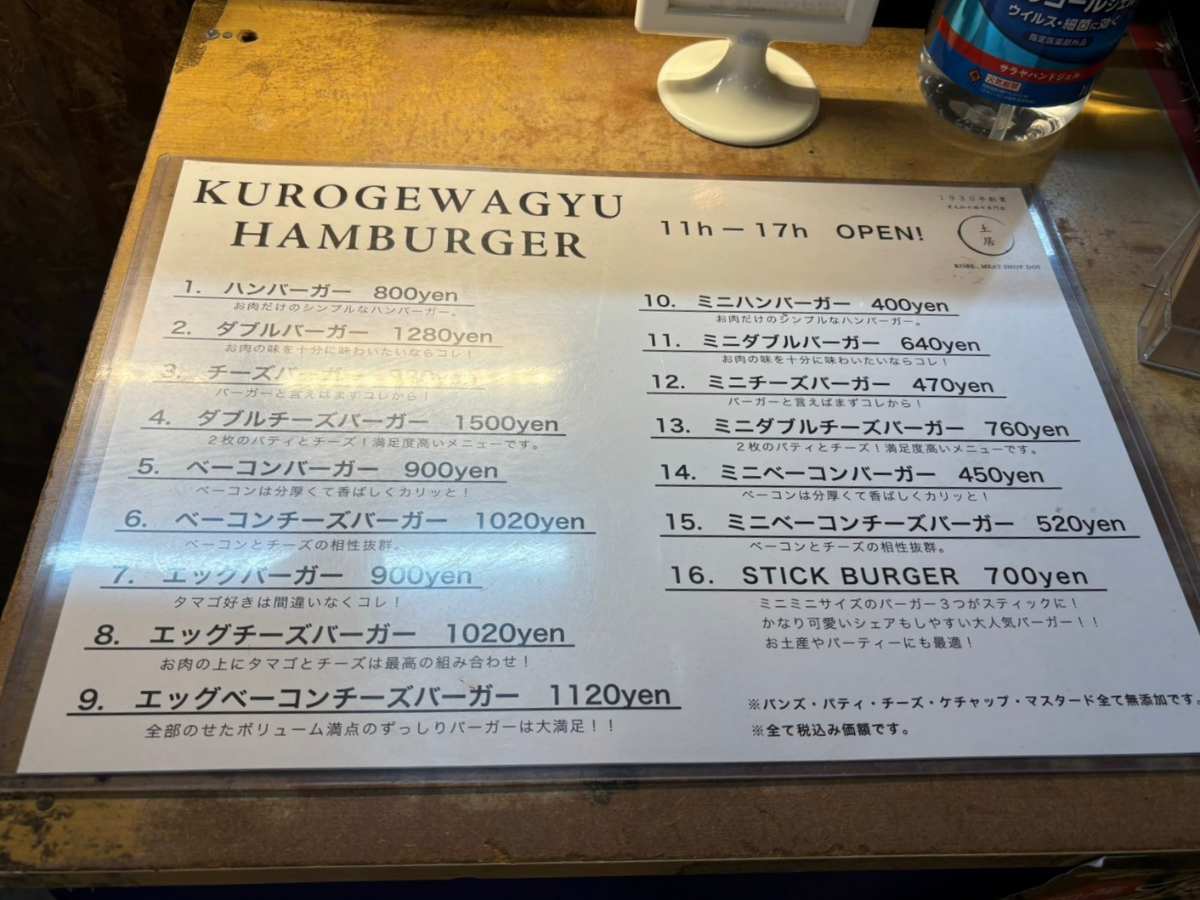 ウイルス・細菌に効く
指定医薬部外品
サラヤハンドジェル
火気厳禁
KUROGEWAGYU
HAMBURGER
11h — 17h OPEN!
1930年創業
土居
KOBE. MEAT SHOP DOI
1. ハンバーガー 800yen
お肉だけのシンプルなハンバーガー。
2. ダブルバーガー 1280yen
お肉の味を十分に味わいたいならコレ！
3. チーズバーガー
バーガーと言えばまずコレから！
4. ダブルチーズバーガー 1500yen
2枚のパティとチーズ！満足度高いメニューです。
5. ベーコンバーガー 900yen
ベーコンは分厚くて香ばしくカリッと！
6. ベーコンチーズバーガー 1020yen
ベーコンとチーズの相性抜群。
7. エッグバーガー 900yen
タマゴ好きは間違いなくコレ！
8. エッグチーズバーガー 1020yen
お肉の上にタマゴとチーズは最高の組み合わせ！
9. エッグベーコンチーズバーガー 1120yen
全部のせたボリューム満点のずっしりバーガーは大満足！！
10. ミニハンバーガー 400yen
お肉だけのシンプルなハンバーガー。
11. ミニダブルバーガー 640yen
お肉の味を十分に味わいたいならコレ！
12. ミニチーズバーガー 470yen
バーガーと言えばまずコレから！
13. ミニダブルチーズバーガー 760yen
2枚のパティとチーズ！満足度高いメニューです。
14. ミニベーコンバーガー 450yen
ベーコンは分厚くて香ばしくカリッと！
15. ミニベーコンチーズバーガー 520yen
ベーコンとチーズの相性抜群。
16. STICK BURGER 700yen
ミニミニサイズのバーガー3つがスティックに！
かなり可愛いシェアもしやすい大人気バーガー！！
お土産やパーティーにも最適！
※バンズ・パティ・チーズ・ケチャップ・マスタード全て無添加です。
※全て税込み価額です。